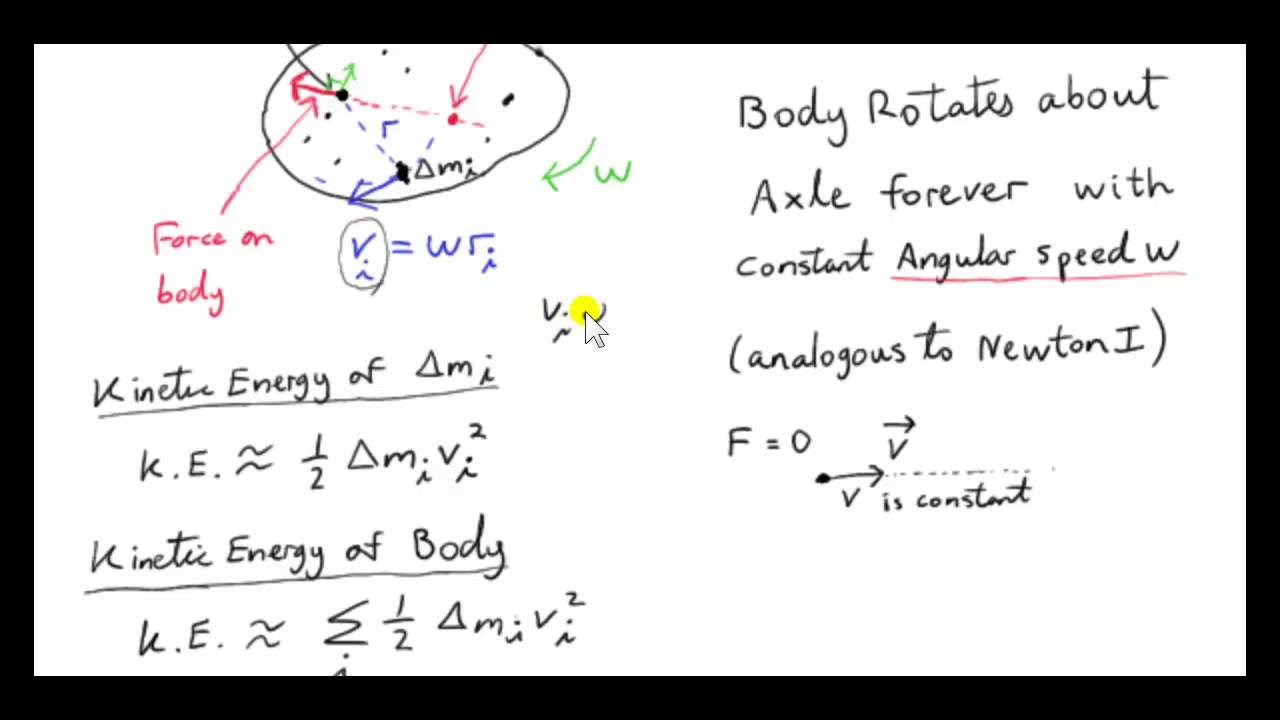 r
Δmᵢ
w
Force on
body
vᵢ = w rᵢ
vᵢ
Kinetic Energy of Δmᵢ
K.E. ≈ 1/2 Δmᵢ vᵢ²
Kinetic Energy of Body
K.E. ≈ Σᵢ 1/2 Δmᵢ vᵢ²
Body Rotates about
Axle forever with
constant Angular speed w
(analogous to Newton I)
F = 0
v⃗
v is constant